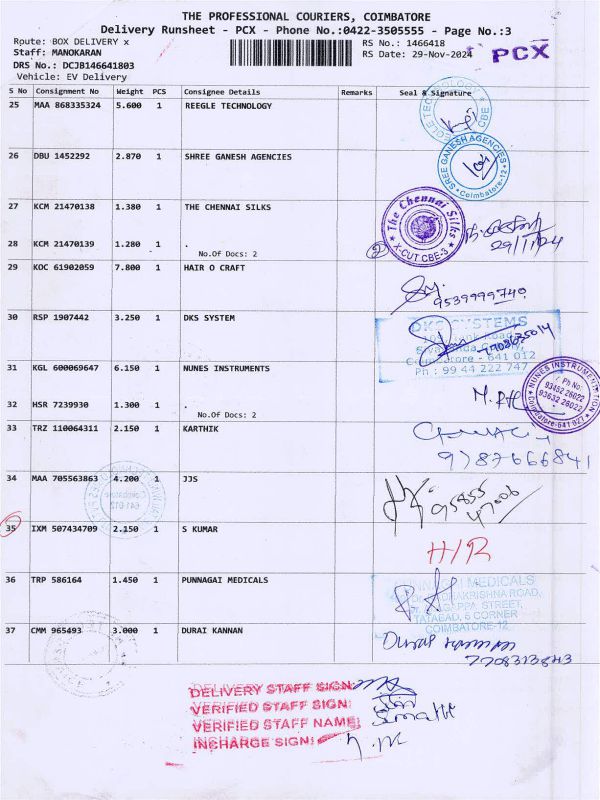 THE PROFESSIONAL COURIERS, COIMBATORE
Delivery Runsheet - PCX - Phone No.:0422-3505555 - Page No.:3
Route: BOX DELIVERY x
RS No.: 1466418
Staff: MANOKARAN
RS Date: 29-Nov-2024
PCX
DRS No.: DCJB146641803
Vehicle: EV Delivery
S No Consignment No Weight PCS Consignee Details Remarks Seal & Signature
25 MAA 868335324 5.600 1 REEGLE TECHNOLOGY
26 DBU 1452292 2.870 1 SHREE GANESH AGENCIES
SHREE GANESH AGENCIES
Coimbatore-12
27 KCM 21470138 1.380 1 THE CHENNAI SILKS
The Chennai Silks
X-CUT, CBE-3
28 KCM 21470139 1.280 1 .
No.Of Docs: 2
2
29/11/24
29 KOC 61902059 7.800 1 HAIR O CRAFT
9539999740
30 RSP 1907442 3.250 1 DKS SYSTEM
DKS SYSTEMS
7708635014
Coimbatore - 641 012
Ph : 99 44 222 747
31 KGL 600069647 6.150 1 NUNES INSTRUMENTS
NUNES INSTRUMENTATION
Ph No
93452 26022
93632 26022
Coimbatore-641 027
32 HSR 7239930 1.300 1 .
No.Of Docs: 2
33 TRZ 110064311 2.150 1 KARTHIK
9787666841
34 MAA 705563863 4.200 1 JJS
95855
47006
35 IXM 507434709 2.150 1 S KUMAR
H/R
36 TRP 586164 1.450 1 PUNNAGAI MEDICALS
PUNNAGAI MEDICALS
TATABAD, 6 CORNER
COIMBATORE-12
37 CMM 965493 3.000 1 DURAI KANNAN
Durai Kannan
7708313843
DELIVERY STAFF SIGN:
VERIFIED STAFF SIGN:
VERIFIED STAFF NAME:
INCHARGE SIGN: